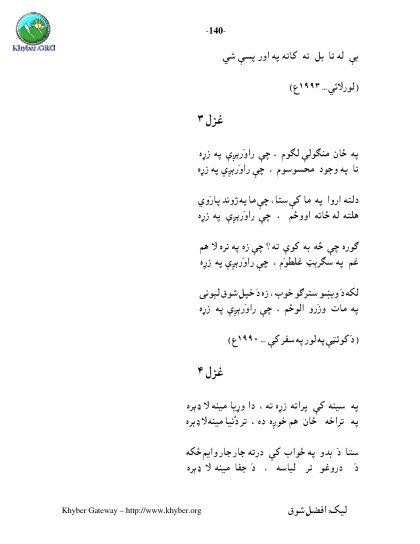 -140-
Khyber.ORG
بې له تا بل ته کاته په اور پسې شي
(لورلائي... ۱۹۹۳ع)
غزل ۳
په ځان منګولې لګوم ، چې راوَرېږې په زړه
تا په وجود محسوسوم ، چې راوَرېږې په زړه
دلته اروا په ما کې ستا، چې ما په ژوند پارَوي
هلته له ځانه اووځم ، چې راوَرېږې په زړه
ګوره چې څه به کوې ته؟ چې زه په نره لا هم
غم په سګريټ غلطوَم ، چې راوَرېږې په زړه
لکه دَ ويښو سترګو خوب ، زه دَ خپل شوق لېونى
په مات وزرو الوځم ، چې راوَرېږې په زړه
(دَ کوئټې په لور په سفر کې ... ۱۹۹۰ع)
غزل ۴
په سينه کې پراته زړه ته ، دا وړيا مينه لا ډېره
په تراخه ځان هم خوږه ده ، تر دُنيا مينه لا ډېره
ستا دَ بدو په ځواب کې درته جار جار وايم ځکه
دَ دروغو تر لباسه ، دَ جفا مينه لا ډېره
Khyber Gateway – http://www.khyber.org
ليک: افضل شوق